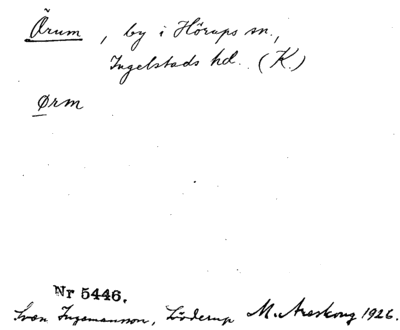 Örum, by i Hörups sn.,
Ingelstads hd. (K.)
Ørm
Nr 5446.
Sven Ingemansson, Löderup M. Areskoug 1926.